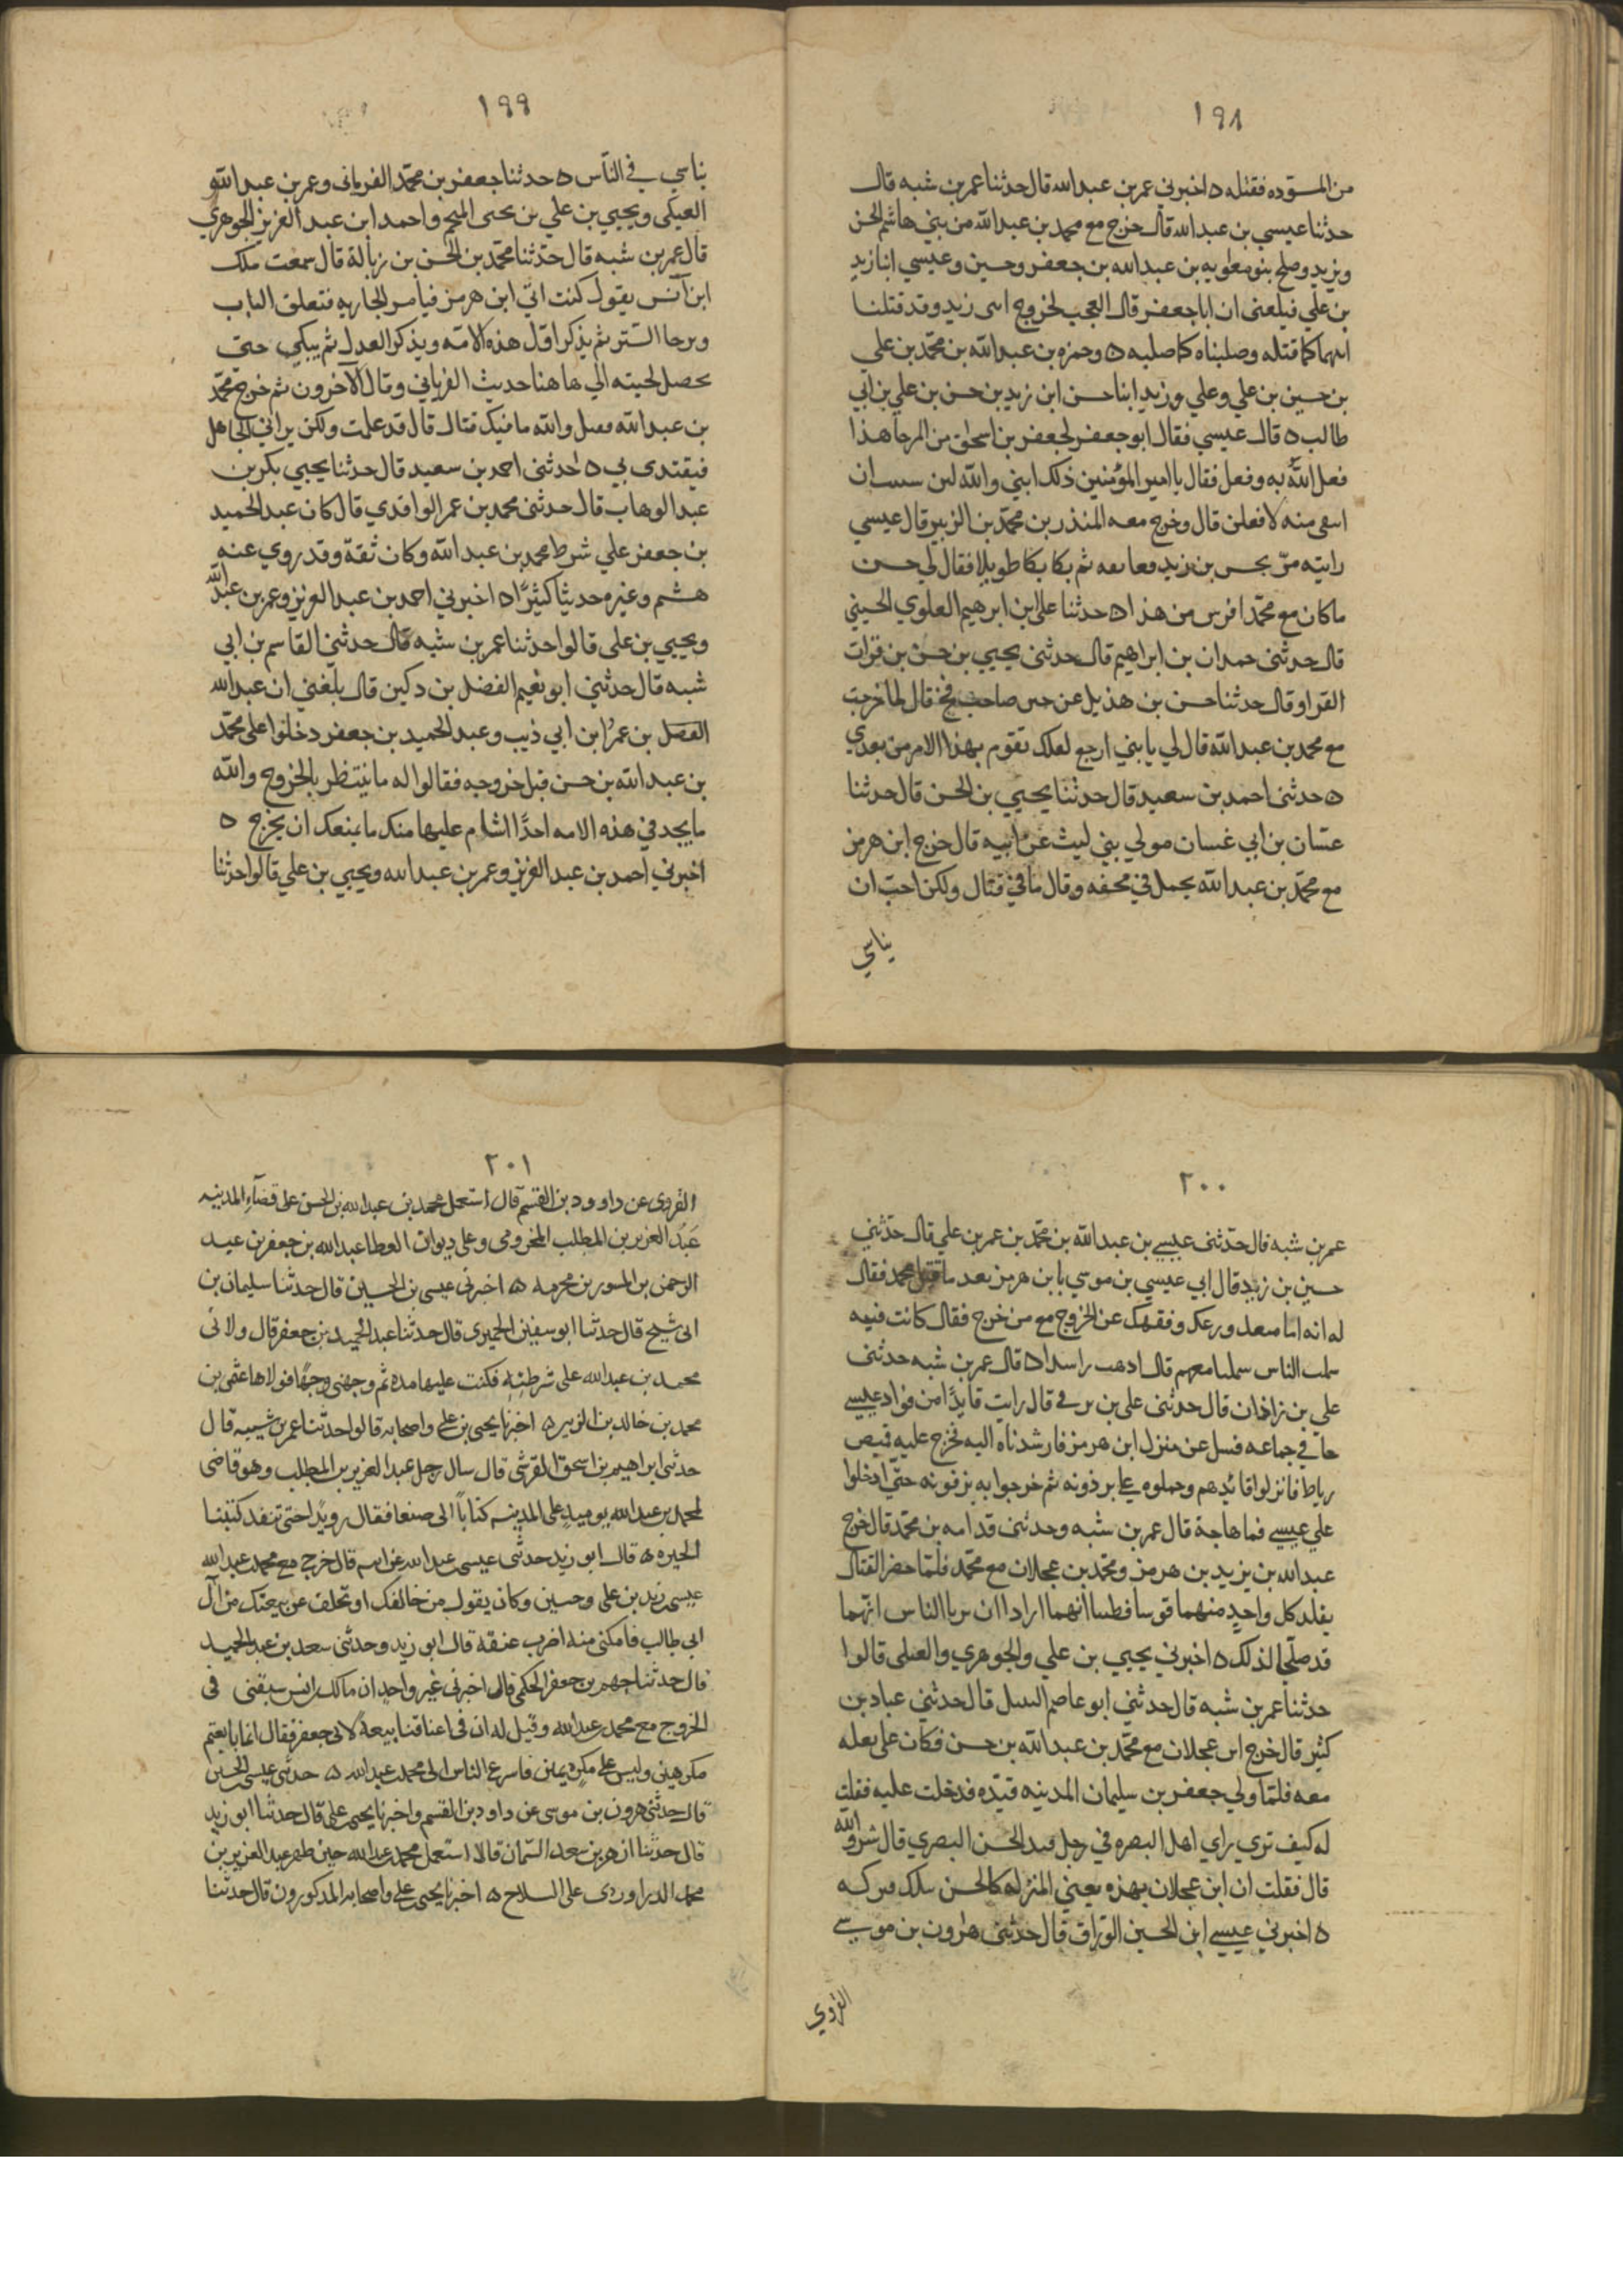 ١٩٨
من المسوده فقتله ه اخبرني عمر بن عبد الله قال حدثنا عمر بن شبه قال
حدثنا عيسي بن عبد الله قال خرج مع محمد بن عبد الله من بني هاشم الحسن
ويزيد وصلح بنو معويه بن عبد الله بن جعفر وحسين وعيسي ابنا زيد
بن علي فبلغني ان ابا جعفر قال العجب لخروج ابني زيد وقد قتلنا
ابيهما كما قتله وصلبناه كما صلبه ه وحمزه بن عبد الله بن محمد بن علي
بن حسين بن علي وعلي وزيد ابنا حسن ابن زيد بن حسن بن علي بن ابي
طالب ه قال عيسي فقال ابو جعفر لجعفر بن اسحاق من المرجا هذا
فعل الله به وفعل فقال يا امير المؤمنين ذلك ابني والله لين ان
منه لافعلن قال وخرج معه المنذر بن محمد بن الزبير قال عيسي
رايته مرّ بحسن بن زيد ثم بكا بكا طويلا فقال لي حسن
ما كان مع محمد افرس من هذا ه حدثنا علي ابن ابرهيم العلوي الحسيني
قال حدثني حمدان بن ابراهيم قال حدثني يحيي بن حسن بن فرات
القزاز قال حدثنا حسن بن هذيل عن حسن صاحب فخ قال لما خرجت
مع محمد بن عبد الله قال لي يا بني ارجع لعلك تقوم بهذا الامر من بعدي
ه حدثني احمد بن سعيد قال حدثنا يحيي بن الحسن قال حدثنا
غسّان بن ابي غسان مولي بني ليث عن ابيه قال خرج ابن هرمز
مع محمّد بن عبد الله يحمل في محفه وقال ما فيّ قتال ولكن احبّ ان
يناسي
١٩٩
يناسي في النّاس ه حدثنا جعفر بن محمّد الفريابي وعمر بن عبد الله
العتكي ويحيي بن علي بن يحيى المنجم واحمد ابن عبد العزيز الجوهري
قال عمر بن شبه قال حدّثنا محمّد بن الحسن بن زبالة قال سمعت ملك
ابن آنس يقول كنت اتي ابن هرمز فيامر الجاريه فتغلق الباب
وترخا الستر ثم يذكر اوّل هذه الامّه ويذكر العدل ثم يبكي حتى
تخضل لحيته الي هاهنا حديث الفريابي وقال الآخرون ثم خرج مع محمّد
بن عبد الله فقيل والله ما فيك قتال قال قد علمت ولكن يراني الجاهل
فيقتدى بي ه حدثني احمد بن سعيد قال حدثنا يحيي بكر بن
عبد الوهاب قال حدثني محمد بن عمر الواقدي قال كان عبد الحميد
بن جعفر علي شرط محمد بن عبد الله وكان ثقة وقد روي عنه
هشيم وغيره حديثا كثيرًا ه اخبرني احمد بن عبد العزيز وعمر بن عبد الله
ويحيي بن علي قالوا حدثنا عمر بن شبه قال حدثني القاسم بن ابي
شبه قال حدثني ابو نعيم الفضل بن دكين قال بلغني ان عبد الله
الفضل بن عمر ابن ابي ذيب وعبد الحميد بن جعفر دخلوا على محمّد
بن عبد الله بن حسن قبل خروجه فقالوا له ما ينتظر بالخروج والله
ما يجد في هذه الامه احدًا اشام عليها منك ما يمنعك ان يخرج ه
اخبرني احمد بن عبد العزيز وعمر بن عبد الله ويحيي بن علي قالوا حدثنا
٢٠٠
عمر بن شبه قال حدّثني عيسي بن عبد الله بن محمّد بن عمر بن علي قال حدّثني
حسين بن زيد قال ابي عيسي بن موسي بابن هرمز بعد ما قتل محمد فقال
له انه اما ورعك وفقهك عن الخروج مع من خرج فقال كانت فتنه
شملت الناس شملتنا معهم قال اذهب راشدا ه قال عمر بن شبه حدثني
علي بن زاذان قال حدثني علي بن برقي قال رايت قايدًا من قواد عيسي
جا في جماعه فسل عن منزل ابن هرمز فارشدناه اليه فخرج عليه قميص
رياط فانزلوا قائدهم وحملوه علي برذونه ثم خرجوا به يزفونه حتّي ادخلوا
علي عيسي فما هاجة قال عمر بن شبه وحدثني قدامه بن محمّد قال خرج
عبد الله بن يزيد بن هرمز ومحمّد بن عجلان مع محمّد فلمّا حضر القتال
يقلد كل واحدٍ منهما قوسا فظننا انهما ارادا ان يريا الناس انّهما
قد صلحا لذلك ه اخبرني يحيي بن علي والجوهري والعتكي قالوا
حدثنا عمر بن شبه قال حدثني ابو عاصم النبيل قال حدثني عباد بن
كثير قال خرج ابن عجلان مع محمّد بن عبد الله بن حسن فكان علي بغله
معه فلمّا ولي جعفر بن سليمان المدينه قيّده فدخلت عليه فقلت
له كيف تري راي اهل البصره في رجل قيد الحسن البصري قال شر والله
قال فقلت ان ابن عجلان بهذه يعني المنزله كالحسن بتلك فتركه
ه اخبرني عيسي ابن الحسين الورّاق قال حدّثني هرون بن موسي
الفروي
٢٠١
الفروي عن داوود بن القسم قال استعمل محمد بن عبد الله بن الحسن على قضآء المدينه
عبد العزيز بن المطلب المخزومي وعلى ديوان العطا عبد الله بن جعفر بن عبد
الرحمن بن المسور بن مخرمه ه اخبرني عيسى بن الحسين قال حدثنا سليمان بن
ابي شيخ قال حدثنا ابو سفين الحميري قال حدثنا عبد الحميد بن جعفر قال ولاني
محمد بن عبد الله على شرطته فكنت عليها مدة ثم وجهني وجهًا فولاها عثمن بن
محمد بن خالد بن الزبير ه اخبرنا يحيى بن علي واصحابه قالوا حدثنا عمر بن شيبه قال
حدثني ابراهيم بن اسحق القرشي قال سال رجل عبد العزيز بن المطلب وهو قاضي
لمحمد بن عبد الله يوميذ على المدينه كتابا الى صنعا فقال رويدًا حتى تنفذ كتبنا
الحيره ه قال ابو زيد حدثني عيسى عبد الله عن ابيه قال خرج مع محمد عبد الله
عيسى زيد بن علي وحسين وكان يقول من خالفك او تخلف عن بيعتك من آل
ابي طالب فامكني منه اضرب عنقه قال ابو زيد وحدثني سعد بن عبد الحميد
قال حدثنا جهم بن جعفر الحكمي قال اخبرني غير واحد ان مالك انس سبقني في
الخروج مع محمد عبد الله وقيل له ان في اعناقنا بيعة لابي جعفر فقال انما بايعتم
مكرهين وليس على مكره يمين فاسرع الناس الى محمد عبد الله ه حدثني عيسى الحسين
قال حدثني هرون بن موسى عن داود بن القسم واخبرنا يحيى علي قال حدثنا ابو زيد
قال حدثنا ازهر بن سعد السّمان قالا استعمل محمد عبد الله حين ظهر عبد العزيز بن
محمد الدراوردي على السلاح ه اخبرنا يحيى علي واصحابه المذكورون قال حدثنا